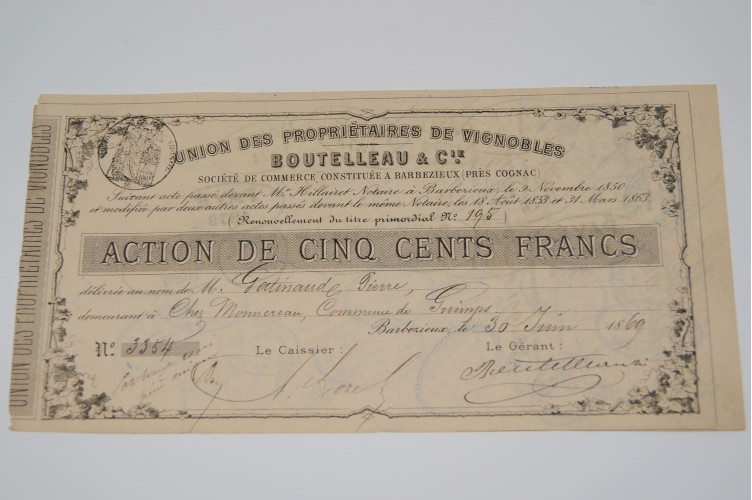 UNION DES PROPRIÉTAIRES DE VIGNOBLES
UNION DES PROPRIÉTAIRES DE VIGNOBLES
BOUTELLEAU & Cie
SOCIÉTÉ DE COMMERCE CONSTITUÉE A BARBEZIEUX (PRÈS COGNAC)
Suivant acte passé devant Me Hillairet Notaire à Barbezieux, le 9 Novembre 1850
et modifiée par deux autres actes passés devant le même Notaire, les 18 Août 1853 et 31 Mars 1863.
(Renouvellement du titre primordial No 195)
ACTION DE CINQ CENTS FRANCS
délivrée au nom de M. Gatinaud, Pierre,
demeurant à Chez Monnereau, Commune de Guimps
Barbezieux, le 30 Juin 1869
No 3354
Le Caissier :
Le Gérant :
Boutelleau